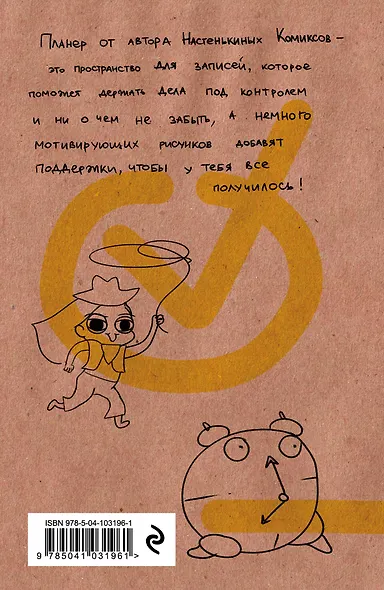 Планер от автора Настенькиных Комиксов –
это пространство для записей, которое
поможет держать дела под контролем
и ни о чем не забыть, а немного
мотивирующих рисунков добавят
поддержки, чтобы у тебя все
получилось!
ISBN 978-5-04-103196-1
9 785041 031961 >